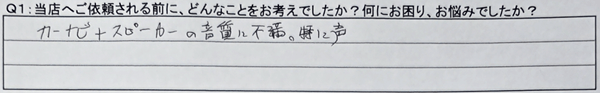 Q1:当店へご依頼される前に、どんなことをお考えでしたか？何にお困り、お悩みでしたか？
カーナビ+スピーカーの音質に不満。特に声